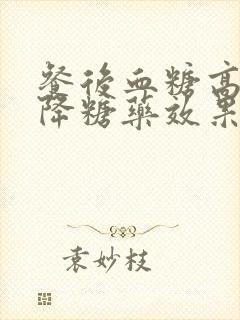 餐後血糖高
降糖藥效果
袁妙枝